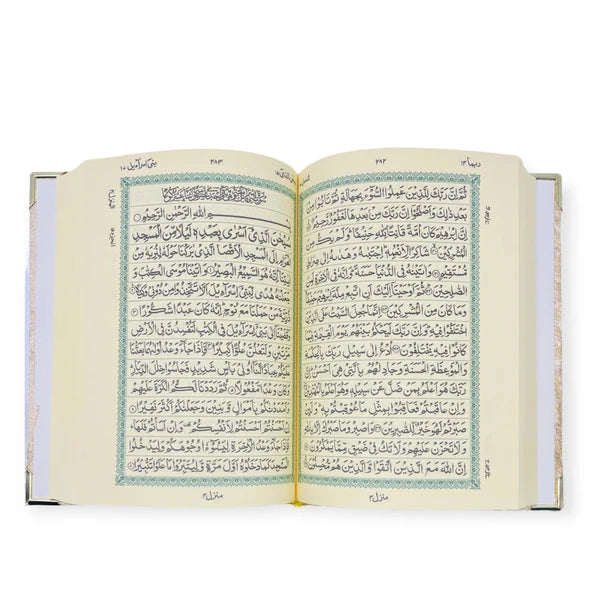 ربما ۱۴
۲۸۲
ثُمَّ اِنَّ رَبَّكَ لِلَّذِيْنَ عَمِلُوا السُّوْٓءَ بِجَهَالَةٍ ثُمَّ تَابُوْا مِنْۢ
بَعْدِ ذٰلِكَ وَاَصْلَحُوْۤا اِنَّ رَبَّكَ مِنْۢ بَعْدِهَا لَغَفُوْرٌ رَّحِيْمٌ
اِنَّ اِبْرٰهِيْمَ كَانَ اُمَّةً قَانِتًا لِّلّٰهِ حَنِيْفًا وَلَمْ يَكُ مِنَ
الْمُشْرِكِيْنَ شَاكِرًا لِّاَنْعُمِهٖ اِجْتَبٰىهُ وَهَدٰىهُ اِلٰى صِرَاطٍ
مُّسْتَقِيْمٍ وَاٰتَيْنٰهُ فِي الدُّنْيَا حَسَنَةً وَاِنَّهٗ فِي الْاٰخِرَةِ لَمِنَ
الصّٰلِحِيْنَ ثُمَّ اَوْحَيْنَاۤ اِلَيْكَ اَنِ اتَّبِعْ مِلَّةَ اِبْرٰهِيْمَ حَنِيْفًا
وَمَا كَانَ مِنَ الْمُشْرِكِيْنَ اِنَّمَا جُعِلَ السَّبْتُ عَلَى الَّذِيْنَ
اخْتَلَفُوْا فِيْهِ وَاِنَّ رَبَّكَ لَيَحْكُمُ بَيْنَهُمْ يَوْمَ الْقِيٰمَةِ فِيْمَا
كَانُوْا فِيْهِ يَخْتَلِفُوْنَ اُدْعُ اِلٰى سَبِيْلِ رَبِّكَ بِالْحِكْمَةِ
وَالْمَوْعِظَةِ الْحَسَنَةِ وَجَادِلْهُمْ بِالَّتِيْ هِيَ اَحْسَنُ اِنَّ
رَبَّكَ هُوَ اَعْلَمُ بِمَنْ ضَلَّ عَنْ سَبِيْلِهٖ وَهُوَ اَعْلَمُ بِالْمُهْتَدِيْنَ
وَاِنْ عَاقَبْتُمْ فَعَاقِبُوْا بِمِثْلِ مَا عُوْقِبْتُمْ بِهٖ وَلَىِٕنْ
صَبَرْتُمْ لَهُوَ خَيْرٌ لِّلصّٰبِرِيْنَ وَاصْبِرْ وَمَا صَبْرُكَ اِلَّا بِاللّٰهِ
وَلَا تَحْزَنْ عَلَيْهِمْ وَلَا تَكُ فِيْ ضَيْقٍ مِّمَّا يَمْكُرُوْنَ
اِنَّ اللّٰهَ مَعَ الَّذِيْنَ اتَّقَوْا وَّالَّذِيْنَ هُمْ مُّحْسِنُوْنَ
منزل۳
۲۸۳
بنی اسرآءیل ۱۷
بِسْمِ اللّٰهِ الرَّحْمٰنِ الرَّحِيْمِ
سُبْحٰنَ الَّذِيْۤ اَسْرٰى بِعَبْدِهٖ لَيْلًا مِّنَ الْمَسْجِدِ
الْحَرَامِ اِلَى الْمَسْجِدِ الْاَقْصَا الَّذِيْ بٰرَكْنَا حَوْلَهٗ لِنُرِيَهٗ مِنْ
اٰيٰتِنَا اِنَّهٗ هُوَ السَّمِيْعُ الْبَصِيْرُ وَاٰتَيْنَا مُوْسَى الْكِتٰبَ وَ
جَعَلْنٰهُ هُدًى لِّبَنِيْۤ اِسْرَآءِيْلَ اَلَّا تَتَّخِذُوْا مِنْ دُوْنِيْ وَكِيْلًا
ذُرِّيَّةَ مَنْ حَمَلْنَا مَعَ نُوْحٍ اِنَّهٗ كَانَ عَبْدًا شَكُوْرًا وَقَضَيْنَاۤ
اِلٰى بَنِيْۤ اِسْرَآءِيْلَ فِي الْكِتٰبِ لَتُفْسِدُنَّ فِي الْاَرْضِ
مَرَّتَيْنِ وَلَتَعْلُنَّ عُلُوًّا كَبِيْرًا فَاِذَا جَآءَ وَعْدُ اُوْلٰىهُمَا بَعَثْنَا
عَلَيْكُمْ عِبَادًا لَّنَاۤ اُولِيْ بَاْسٍ شَدِيْدٍ فَجَاسُوْا خِلٰلَ الدِّيَارِ
وَكَانَ وَعْدًا مَّفْعُوْلًا ثُمَّ رَدَدْنَا لَكُمُ الْكَرَّةَ عَلَيْهِمْ
وَاَمْدَدْنٰكُمْ بِاَمْوَالٍ وَّبَنِيْنَ وَجَعَلْنٰكُمْ اَكْثَرَ نَفِيْرًا
اِنْ اَحْسَنْتُمْ اَحْسَنْتُمْ لِاَنْفُسِكُمْ وَاِنْ اَسَاْتُمْ فَلَهَا
فَاِذَا جَآءَ وَعْدُ الْاٰخِرَةِ لِيَسُوْٓءٗا وُجُوْهَكُمْ وَلِيَدْخُلُوا
الْمَسْجِدَ كَمَا دَخَلُوْهُ اَوَّلَ مَرَّةٍ وَّلِيُتَبِّرُوْا مَا عَلَوْا تَتْبِيْرًا
منزل۴